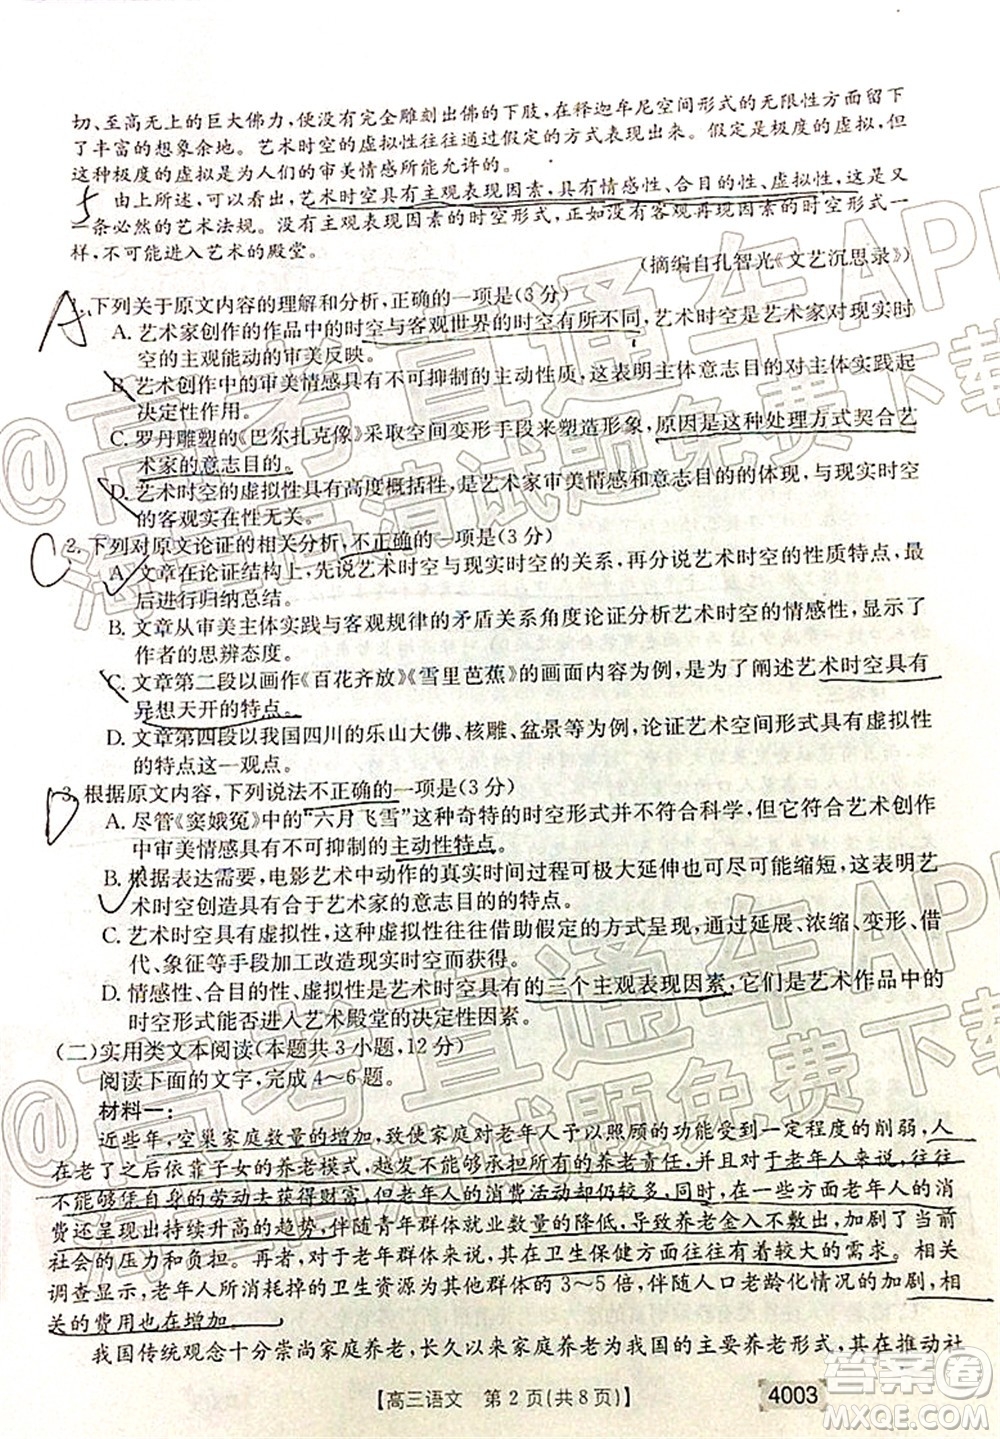 切、至高无上的巨大佛力,却没有完全雕刻出佛的下肢,在释迦牟尼空间形式的无限性方面留下
了丰富的想象余地。艺术时空的虚拟性往往通过假定的方式表现出来。假定是极度的虚拟,但
这种极度的虚拟是为人们的审美情感所能允许的。
由上所述,可以看出,艺术时空具有主观表现因素,具有情感性、合目的性、虚拟性,这是又
一条必然的艺术法规。没有主观表现因素的时空形式,正如没有客观再现因素的时空形式一
样,不可能进入艺术的殿堂。
(摘编自孔智光《文艺沉思录》)
A
1. 下列关于原文内容的理解和分析,正确的一项是(3分)
A. 艺术家创作的作品中的时空与客观世界的时空有所不同,艺术时空是艺术家对现实时
空的主观能动的审美反映。
B. 艺术创作中的审美情感具有不可抑制的主动性质,这表明主体意志目的对主体实践起
决定性作用。
C. 罗丹雕塑的《巴尔扎克像》采取空间变形手段来塑造形象,原因是这种处理方式契合艺
术家的意志目的。
D. 艺术时空的虚拟性具有高度概括性,是艺术家审美情感和目的的体现,与现实时空
的客观实在性无关。
C
2. 下列对原文论证的相关分析,不正确的一项是(3分)
A. 文章在论证结构上,先说艺术时空与现实时空的关系,再分说艺术时空的性质特点,最
后进行归纳总结。
B. 文章从审美主体实践与客观规律的矛盾关系角度论证分析艺术时空的情感性,显示了
作者的思辨态度。
C. 文章第二段以画作《百花齐放》《雪里芭蕉》的画面内容为例,是为了阐述艺术时空具有
异想天开的特点。
D. 文章第四段以我国四川的乐山大佛、核雕、盆景等为例,论证艺术空间形式具有虚拟性
的特点这一观点。
D
3. 根据原文内容,下列说法不正确的一项是(3分)
A. 尽管《窦娥冤》中的“六月飞雪”这种奇特的时空形式并不符合科学,但体现了艺术创作
中审美情感具有不可抑制的主动性特点。
B. 根据表达需要,电影艺术中动作的真实时间过程可极大延伸也可尽可能缩短,这表明艺
术时空创造具有合于艺术家的意志目的的特点。
C. 艺术时空具有虚拟性,这种虚拟性往往借助假定的方式呈现,通过延展、浓缩、变形、借
代、象征等手段加工改造现实时空而获得。
D. 情感性、合目的性、虚拟性是艺术时空具有的三个主观表现因素,它们是艺术作品中的
时空形式能否进入艺术殿堂的决定性因素。
(二)实用类文本阅读(本题共3小题,12分)
阅读下面的文字,完成4~6题。
材料一:
近些年,空巢家庭数量的增加,致使家庭对老年人予以照顾的功能受到一定程度的削弱,人
在老了之后依靠子女的养老模式,越发不能够承担所有的养老责任。而对于老年人来说,往往
不能够凭自身的劳动去获得财富,但老年人的消费活动却仍较多,且老年人的消
费还呈现出持续升高的趋势,伴随青年群体就业数量的降低,导致养老金入不敷出,加剧了当前
社会的压力和负担。再者,对于老年群体来说,其在卫生保健方面往往有着较大的需求。有关
调查显示:老年人所消耗掉的卫生资源为其他群体的3~5倍,随着人口老龄化情况的加剧,相
关的费用也在增加。
我国传统观念十分崇尚家庭养老,长久以来家庭养老为我国的主要养老形式,其在推动社
【高三语文　第2页(共8页)】
4003
@高考直通车APP
海量高清试题免费下载
@高考直通车APP
海量高清试题免费下载
答案圈
MXQE.COM